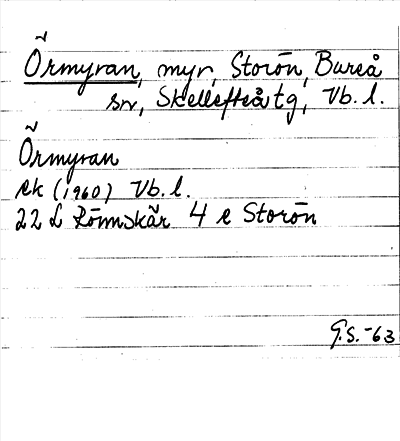 Örmyran, myr, Storön, Bureå
sn, Skellefteå tg, Vb. l.
Örmyran
ek (1960) Vb. l.
22 L Rönnskär 4 e Storön
G.S. -63